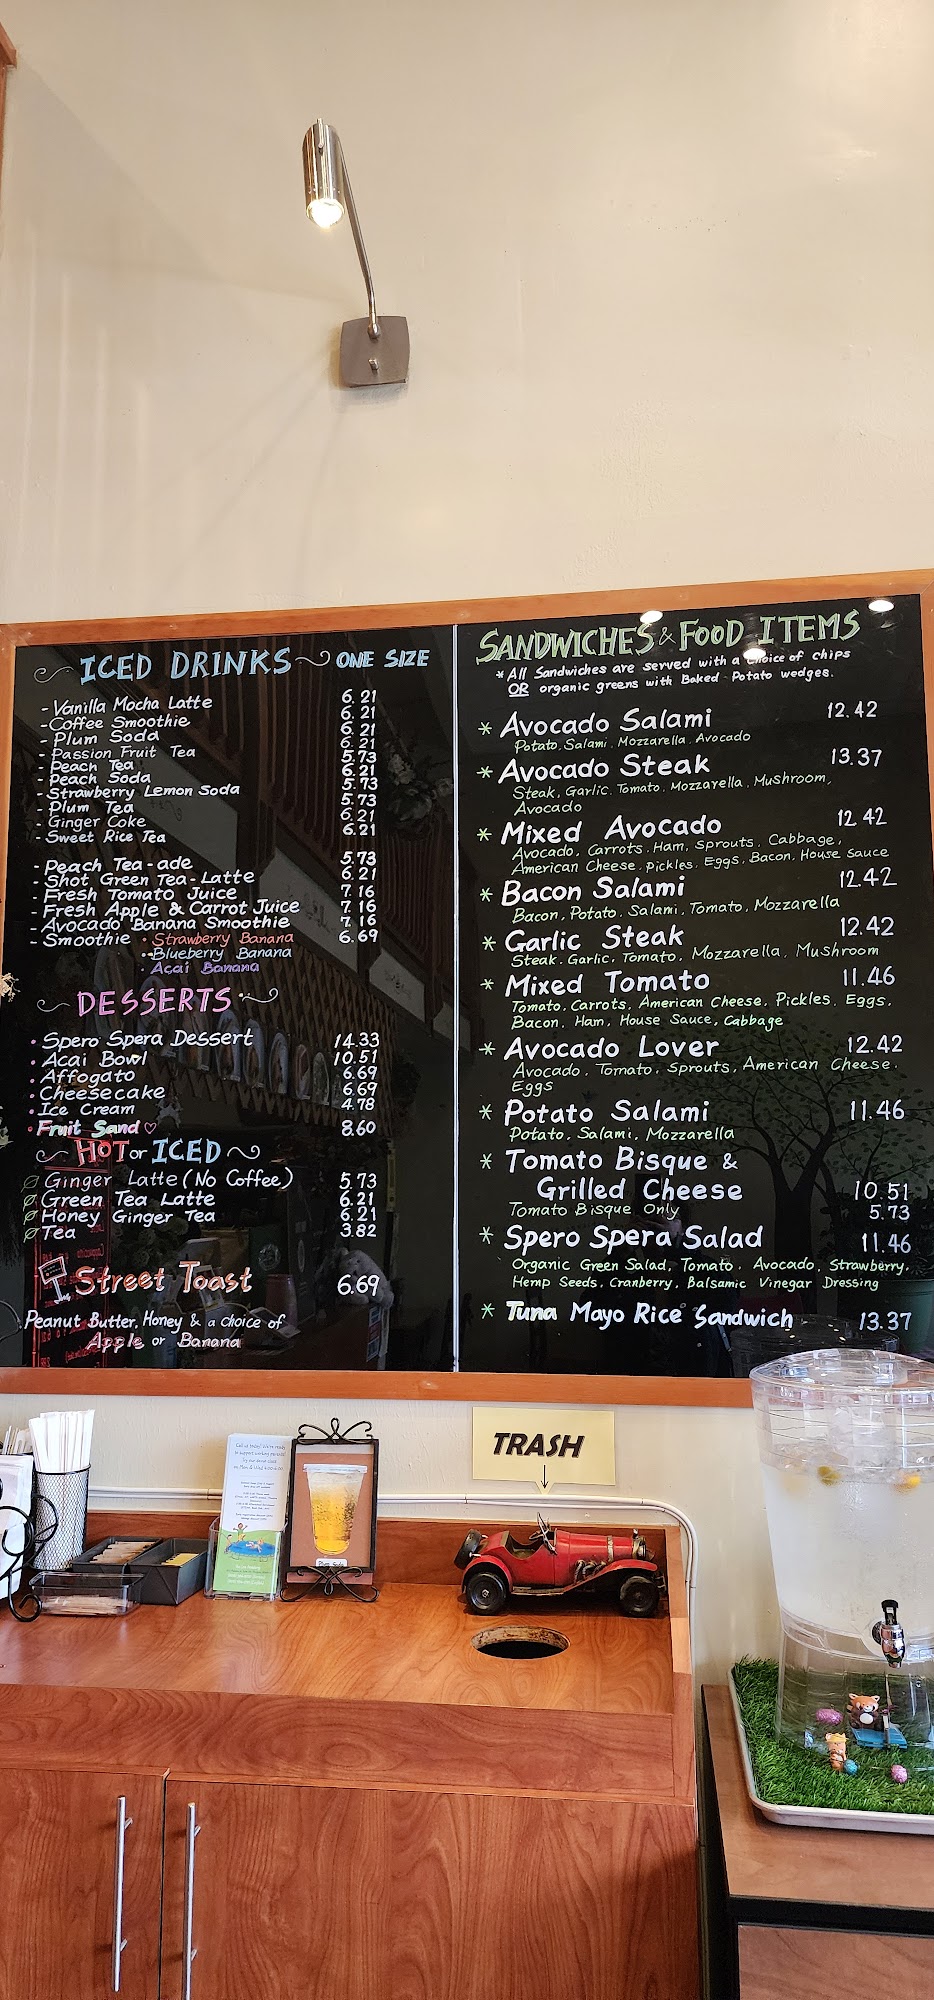 ICED DRINKS ONE SIZE
- Vanilla Mocha Latte 6.21
- Coffee Smoothie 6.21
- Plum Soda 6.21
- Passion Fruit Tea 6.21
- Peach Tea 5.73
- Peach Soda 6.21
- Strawberry Lemon Soda 5.73
- Plum Tea 5.73
- Ginger Coke 6.21
- Sweet Rice Tea 6.21
- Peach Tea-ade 5.73
- Shot Green Tea-Latte 6.21
- Fresh Tomato Juice 7.16
- Fresh Apple & Carrot Juice 7.16
- Avocado Banana Smoothie 7.16
- Smoothie • Strawberry Banana 6.69
• Blueberry Banana
• Acai Banana
DESSERTS
• Spero Spera Dessert 14.33
• Acai Bowl 10.51
• Affogato 6.69
• Cheesecake 6.69
• Ice Cream 4.78
• Fruit Sand ♡ 8.60
HOT or ICED
Ginger Latte (No Coffee) 5.73
Green Tea Latte 6.21
Honey Ginger Tea 6.21
Tea 3.82
Street Toast 6.69
Peanut Butter, Honey & a choice of
Apple or Banana
SANDWICHES & FOOD ITEMS
* All Sandwiches are served with a choice of chips
OR organic greens with Baked Potato wedges.
* Avocado Salami 12.42
Potato, Salami, Mozzarella, Avocado
* Avocado Steak 13.37
Steak, Garlic, Tomato, Mozzarella, Mushroom,
Avocado
* Mixed Avocado 12.42
Avocado, Carrots, Ham, Sprouts, Cabbage,
American Cheese, Pickles, Eggs, Bacon, House Sauce
* Bacon Salami 12.42
Bacon, Potato, Salami, Tomato, Mozzarella
* Garlic Steak 12.42
Steak, Garlic, Tomato, Mozzarella, Mushroom
* Mixed Tomato 11.46
Tomato, Carrots, American Cheese, Pickles, Eggs,
Bacon, Ham, House Sauce, Cabbage
* Avocado Lover 12.42
Avocado, Tomato, Sprouts, American Cheese,
Eggs
* Potato Salami 11.46
Potato, Salami, Mozzarella
* Tomato Bisque &
Grilled Cheese 10.51
Tomato Bisque Only 5.73
* Spero Spera Salad 11.46
Organic Green Salad, Tomato, Avocado, Strawberry,
Hemp Seeds, Cranberry, Balsamic Vinegar Dressing
* Tuna Mayo Rice Sandwich 13.37
TRASH
Plum Soda